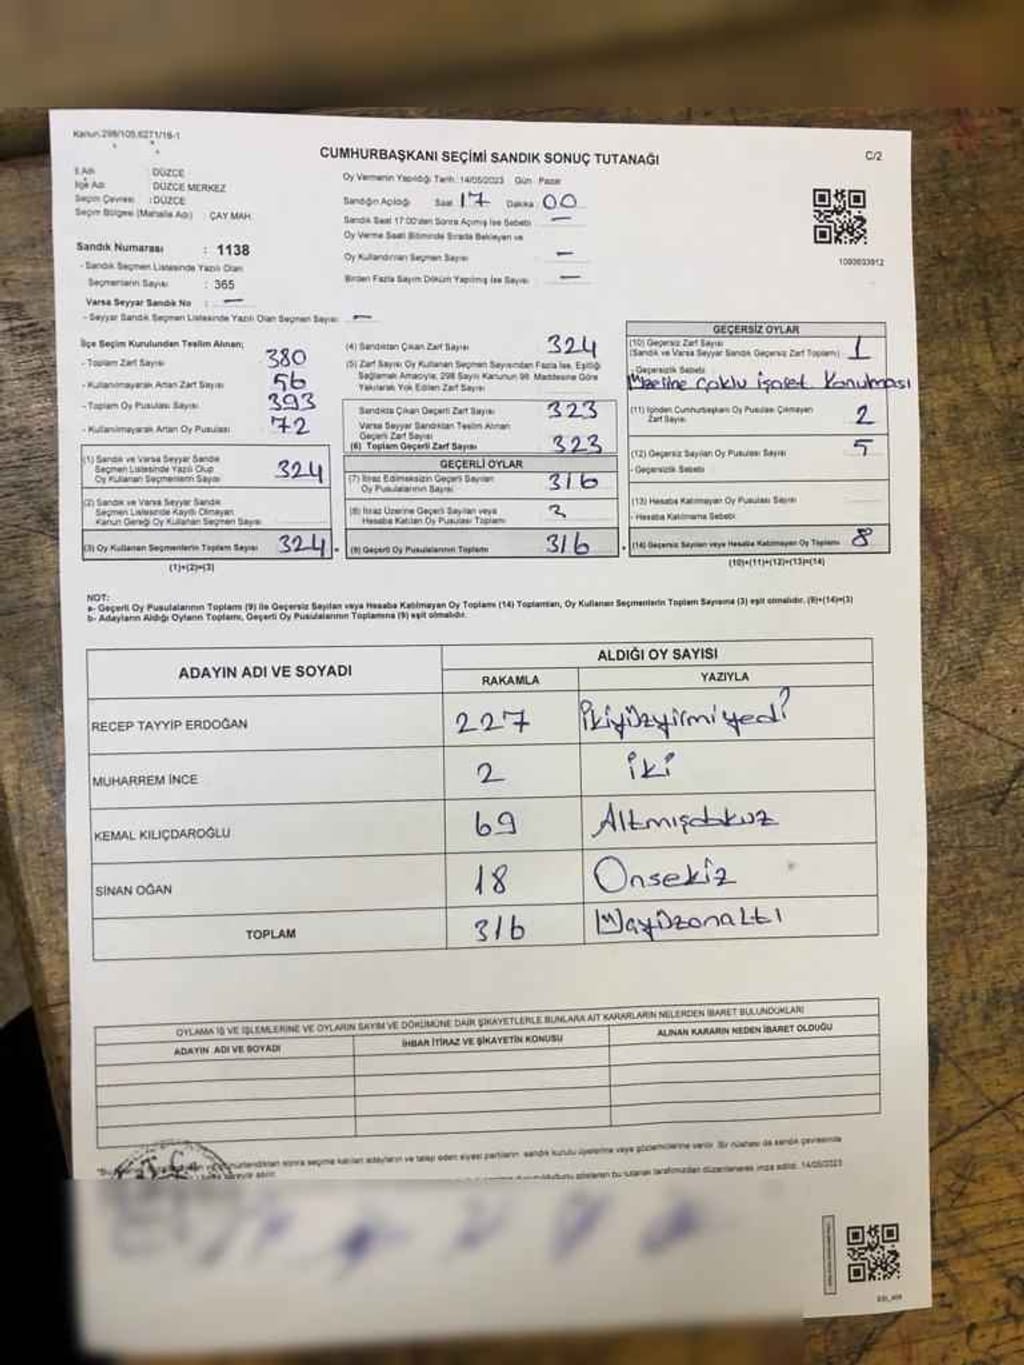 Kanun:298/105,6271/16-1
CUMHURBAŞKANI SEÇİMİ SANDIK SONUÇ TUTANAĞI
C/2
İl Adı : DÜZCE
İlçe Adı : DÜZCE MERKEZ
Seçim Çevresi : DÜZCE
Seçim Bölgesi (Mahalle Adı) : ÇAY MAH.
Sandık Numarası : 1138
- Sandık Seçmen Listesinde Yazılı Olan
Seçmenlerin Sayısı : 365
Varsa Seyyar Sandık No : —
- Seyyar Sandık Seçmen Listesinde Yazılı Olan Seçmen Sayısı: —
Oy Vermenin Yapıldığı Tarih: 14/05/2023 Gün: Pazar
Sandığın Açıldığı Saat 17 Dakika: 00
Sandık Saat 17:00'den Sonra Açılmış İse Sebebi: —
Oy Verme Saati Bitiminde Sırada Bekleyen ve
Oy Kullandırılan Seçmen Sayısı —
Birden Fazla Sayım Döküm Yapılmış İse Sayısı: —
1093633912
İlçe Seçim Kurulundan Teslim Alınan;
- Toplam Zarf Sayısı 380
- Kullanılmayarak Artan Zarf Sayısı 56
- Toplam Oy Pusulası Sayısı 393
- Kullanılmayarak Artan Oy Pusulası 72
(1) Sandık ve Varsa Seyyar Sandık
Seçmen Listesinde Yazılı Olup
Oy Kullanan Seçmenlerin Sayısı 324
(2) Sandık ve Varsa Seyyar Sandık
Seçmen Listesinde Kayıtlı Olmayan
Kanun Gereği Oy Kullanan Seçmen Sayısı
(3) Oy Kullanan Seçmenlerin Toplam Sayısı 324
(1)+(2)=(3)
(4) Sandıktan Çıkan Zarf Sayısı 324
(5) Zarf Sayısı Oy Kullanan Seçmen Sayısından Fazla İse, Eşitliği
Sağlamak Amacıyla, 298 Sayılı Kanunun 98. Maddesine Göre
Yakılarak Yok Edilen Zarf Sayısı
Sandıkta Çıkan Geçerli Zarf Sayısı 323
Varsa Seyyar Sandıktan Teslim Alınan
Geçerli Zarf Sayısı
(6) Toplam Geçerli Zarf Sayısı 323
GEÇERLİ OYLAR
(7) İtiraz Edilmeksizin Geçerli Sayılan
Oy Pusulalarının Sayısı 316
(8) İtiraz Üzerine Geçerli Sayılan veya
Hesaba Katılan Oy Pusulası Toplamı
(9) Geçerli Oy Pusulalarının Toplamı 316
GEÇERSİZ OYLAR
(10) Geçersiz Zarf Sayısı 1
(Sandık ve Varsa Seyyar Sandık Geçersiz Zarf Toplamı)
- Geçersizlik Sebebi
çoklu işaret Konulması
(11) İçinden Cumhurbaşkanı Oy Pusulası Çıkmayan
Zarf Sayısı 2
(12) Geçersiz Sayılan Oy Pusulası Sayısı 5
- Geçersizlik Sebebi
(13) Hesaba Katılmayan Oy Pusulası Sayısı
- Hesaba Katılmama Sebebi
(14) Geçersiz Sayılan veya Hesaba Katılmayan Oy Toplamı 8
(10)+(11)+(12)+(13)=(14)
NOT:
a- Geçerli Oy Pusulalarının Toplamı (9) ile Geçersiz Sayılan veya Hesaba Katılmayan Oy Toplamı (14) Toplamları, Oy Kullanan Seçmenlerin Toplam Sayısına (3) eşit olmalıdır. (9)+(14)=(3)
b- Adayların Aldığı Oyların Toplamı, Geçerli Oy Pusulalarının Toplamına (9) eşit olmalıdır.
ADAYIN ADI VE SOYADI
ALDIĞI OY SAYISI
RAKAMLA YAZIYLA
RECEP TAYYİP ERDOĞAN 227 İkiyüzyirmiyedi
MUHARREM İNCE 2 iki
KEMAL KILIÇDAROĞLU 69 Altmışdokuz
SİNAN OĞAN 18 Onsekiz
TOPLAM 316
OYLAMA İŞ VE İŞLEMLERİNE VE OYLARIN SAYIM VE DÖKÜMÜNE DAİR ŞİKAYETLERLE BUNLARA AİT KARARLARIN NELERDEN İBARET BULUNDUKLARI
ADAYIN ADI VE SOYADI
İHBAR İTİRAZ VE ŞİKAYETİN KONUSU
ALINAN KARARIN NEDEN İBARET OLDUĞU
sonra seçime katılan adayların ve talep eden siyasi partilerin sandık kurulu üyelerine veya gözlemcilerine verilir. Bir nüshası da sandık çevresinde
bu tutanak tarafımızdan düzenlenerek imza edildi. 14/05/2023